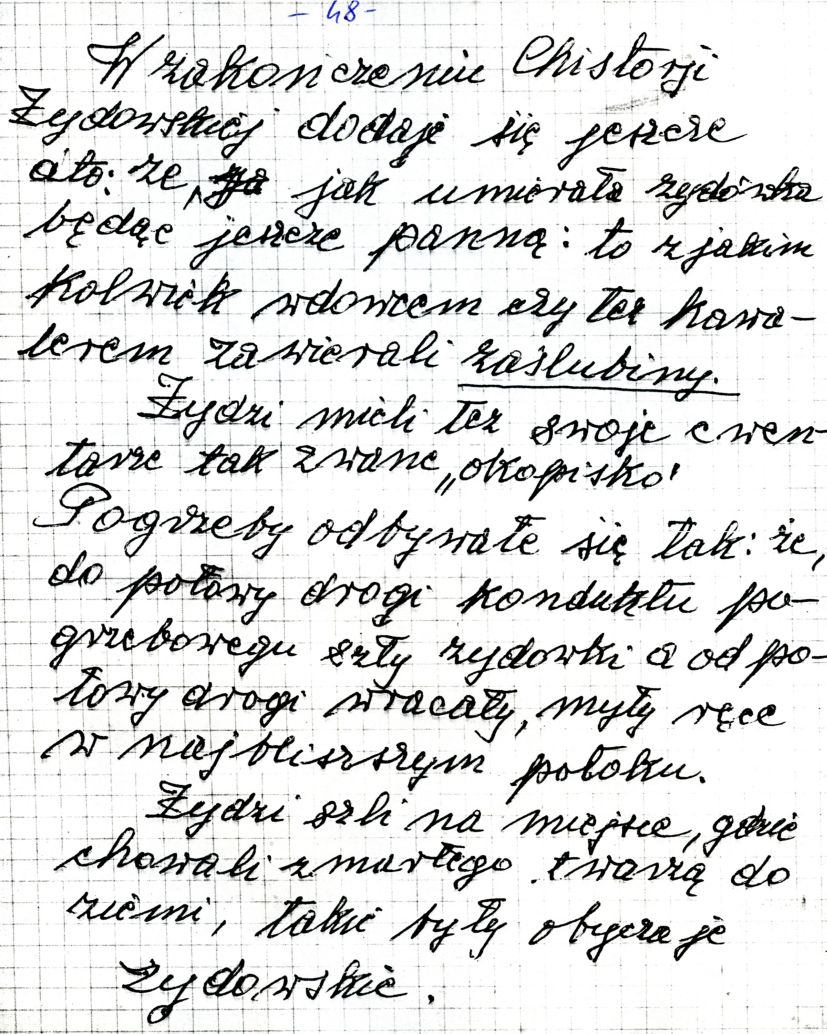 - 48 -
W zakończeniu Chistorji
Żydowskiej dodaje się jeszcze
ato: że, jak umierała żydówka
będąc jeszcze panną: to z jakim
kolwiek wdowcem czy też kawa-
lerem zawierali zaślubiny.
Żydzi mieli też swoje cwen-
tarze tak zwane „okopisko"
Pogrzeby odbywałe się tak: że,
do połowy drogi konduktu po-
grzebowegu szły żydowki a od po-
łowy drogi wracały, myły ręce
w najbliszszym potoku.
Żydzi szli na miejsce, gdzie
chowali zmarłego twarzą do
ziemi, takie były obyczaje
żydowskie.